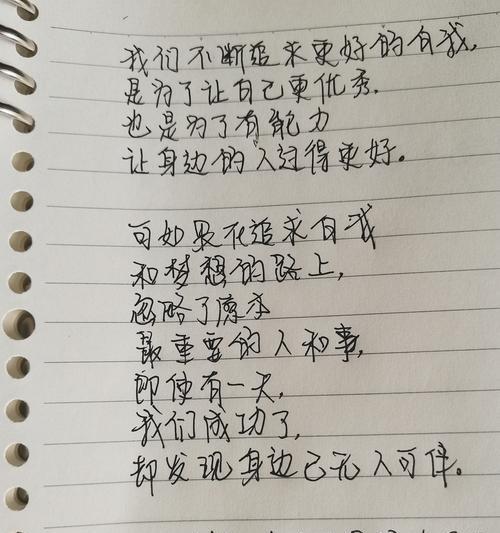 我们不断追求更好的自我,
是为了让自己更优秀.
也是为了有能力
让身边的人过得更好。
可如果在追求自我
和梦想的路上,
忽略了原本
最重要的人和事,
即使有一天,
我们成功了,
却发现身边已无人可伴。